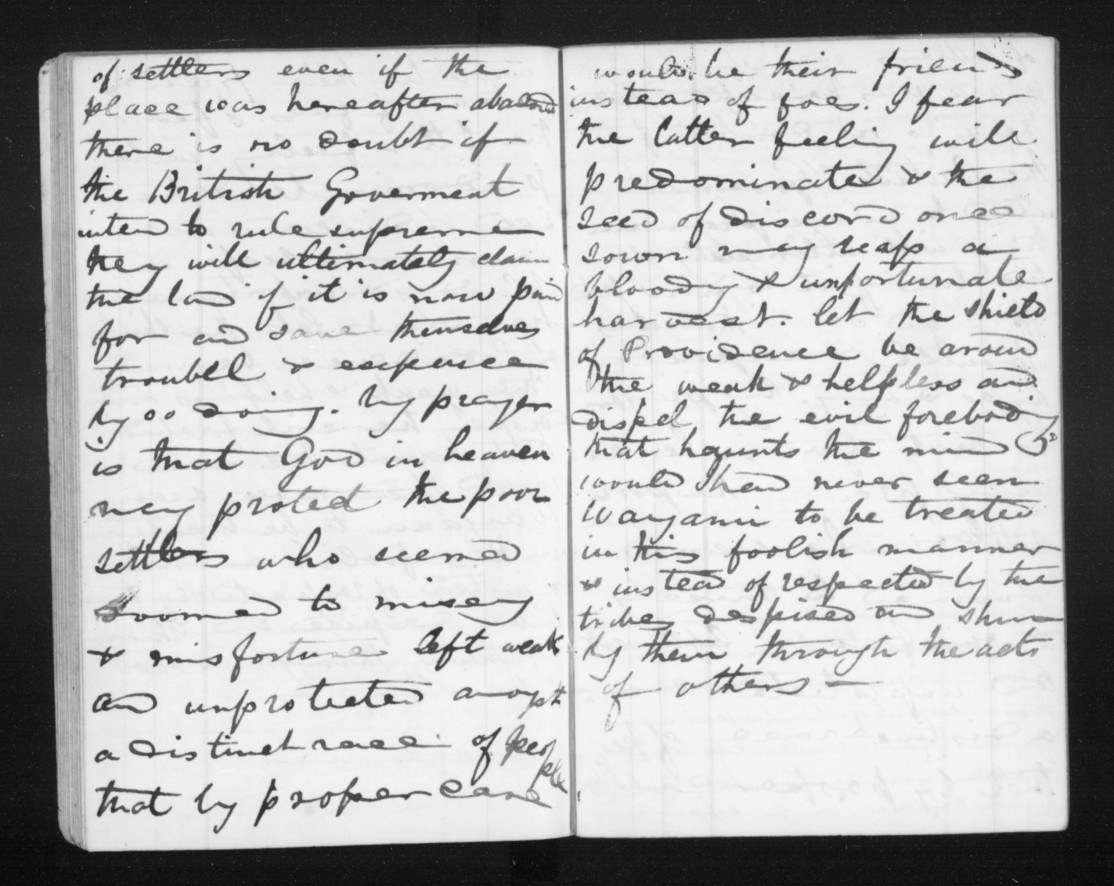 of settlers even if the
place was hereafter abandond
there is no doubt if
the British Goverment
intend to rule supreme
they will ultimately claim
the land if it is now paid
for and save themselves
troubll & expense
by so doing. My prayer
is that God in heaven
may protect the poor
settlers who seemed
doomed to misery
& misfortune left weak
and unprotected amongst
a distinct race of peo
ple
that by proper care
would be their friends
instead of foes. I fear
the latter feeling will
predominate & the
seed of discord once
sown may reap a
bloody & unfortunate
harvest. let the shield
of Providence be around
the weak & helpless and
dispel the evil foreboding
that haunts the mind
would I had never seen
Wangami to be treated
in this foolish manner
& instead of respected by the
tribes despised and shun
by them through the acts
of others —